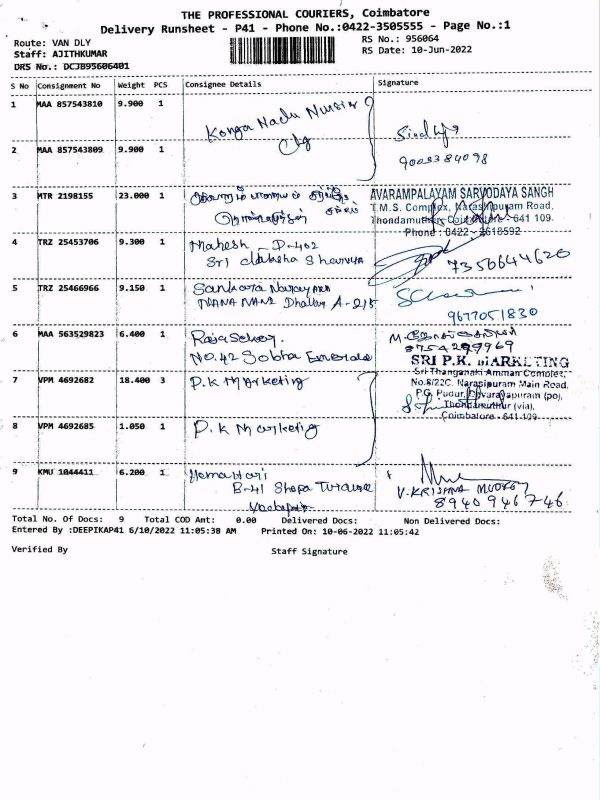 THE PROFESSIONAL COURIERS, Coimbatore
Delivery Runsheet - P41 - Phone No.:0422-3505555 - Page No.:1
Route: VAN DLY
RS No.: 956064
Staff: AJITHKUMAR
RS Date: 10-Jun-2022
DRS No.: DCJB95606401
S No Consignment No Weight PCS Consignee Details Signature
1 MAA 857543810 9.900 1 Konga Nadu Nursing
Clg
2 MAA 857543809 9.900 1
9003384098
3 MTR 2198155 23.000 1
AVARAMPALAYAM SARVODAYA SANGH
T.M.S. Complex, Narasipuram Road,
Thondamuthur, Coimbatore - 641 109.
Phone : 0422 - 2618592
4 TRZ 25453706 9.300 1 Mahesh - D-402
Sri Daksha
7356644620
5 TRZ 25466966 9.150 1 Sankara Narayanan
A-218
9677051830
6 MAA 563529823 6.400 1 Rajasekar.
No.42 Sobha Emerald
8754299969
SRI P.K. MARKETING
Sri Thanganaki Amman Complex,
No.8/22C, Narasipuram Main Road,
P.G. Pudur, Devarayapuram (po),
Thondamuthur (via),
Coimbatore - 641 109.
7 VPM 4692682 18.400 3 P.K Marketing
8 VPM 4692685 1.050 1 P.K Marketing
9 KMU 1044411 6.200 1 Hema Hari
B-41
V.KRISHNA
8940946746
Total No. Of Docs: 9 Total COD Amt: 0.00 Delivered Docs: Non Delivered Docs:
Entered By :DEEPIKAP41 6/10/2022 11:05:38 AM Printed On: 10-06-2022 11:05:42
Verified By Staff Signature